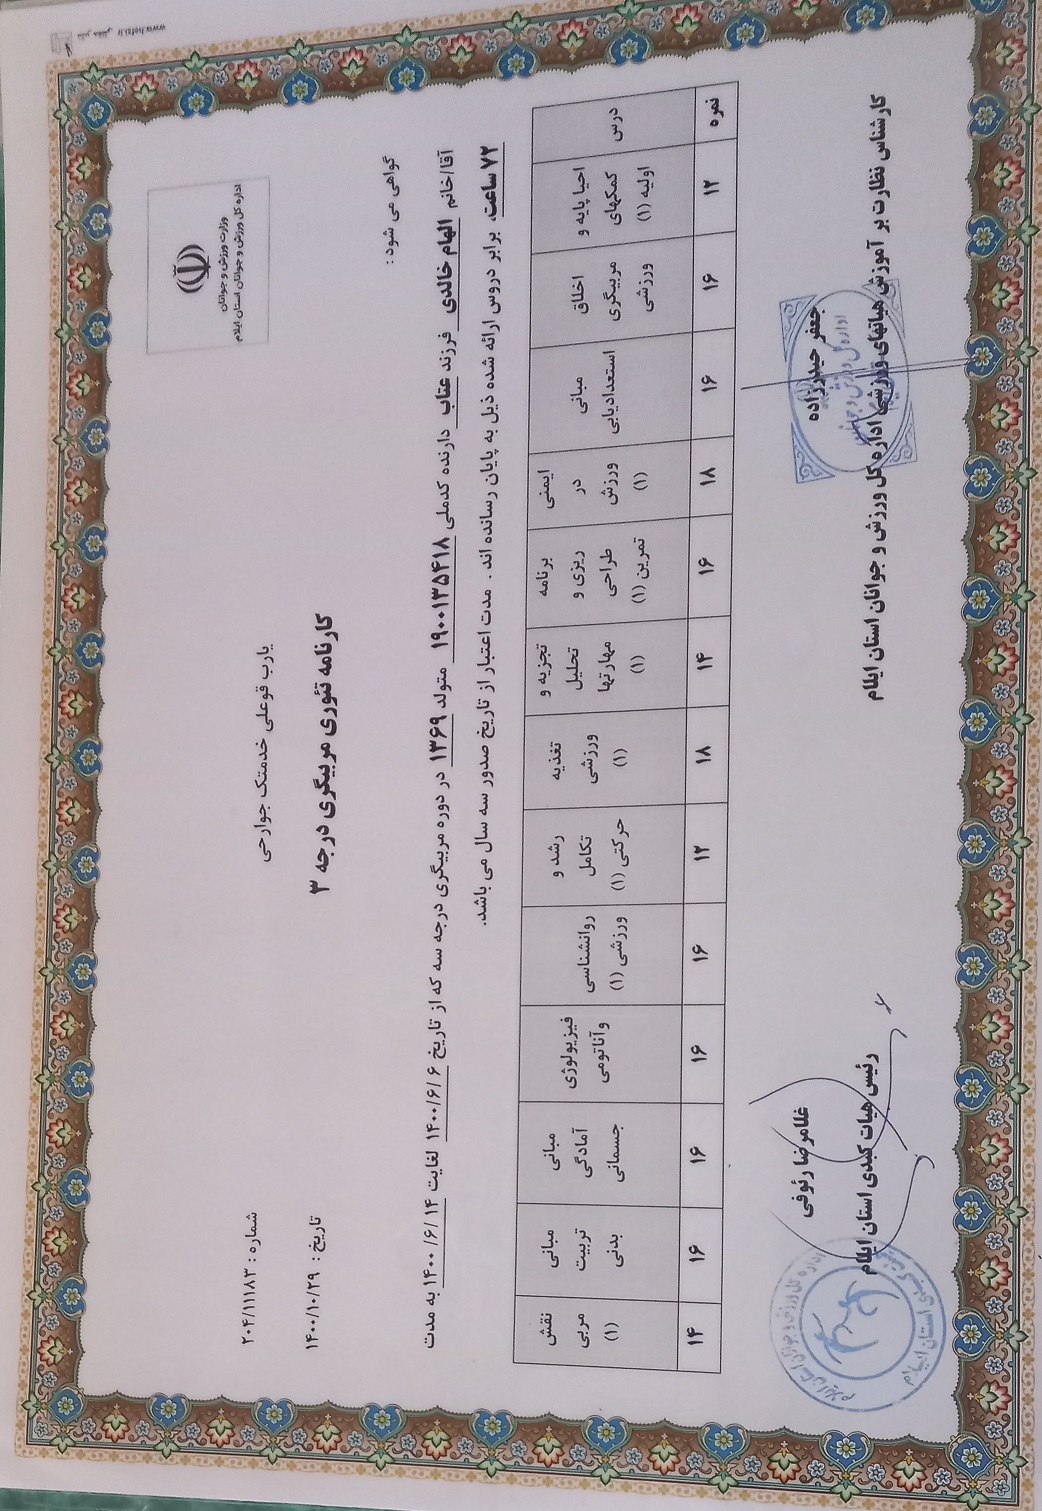 وزارت ورزش و جوانان
اداره کل ورزش و جوانان استان ایلام
یارب قوعلی خدمتک جوارحی
شماره : ۲۰۴/۱۱۱۸۳
کارنامه تئوری مربیگری درجه ۳
تاریخ : ۱۴۰۰/۱۰/۲۹
گواهی می شود :
آقا/خانم الهام خالدی فرزند عناب دارنده کدملی ۱۹۰۰۱۳۵۴۱۸ متولد ۱۳۶۹ در دوره مربیگری درجه سه که از تاریخ ۱۴۰۰/۶/۶ لغایت ۱۴۰۰/۶/۱۴ به مدت
۷۲ ساعت، برابر دروس ارائه شده ذیل به پایان رسانده اند . مدت اعتبار از تاریخ صدور سه سال می باشد.
درس
احیا پایه و
کمکهای
اولیه (۱)
اخلاق
مربیگری
ورزشی
مبانی
استعدادیابی
ایمنی
در
ورزش
(۱)
برنامه
ریزی و
طراحی
تمرین (۱)
تجزیه و
تحلیل
مهارتها
(۱)
تغذیه
ورزشی
(۱)
رشد و
تکامل
حرکتی (۱)
روانشناسی
ورزشی (۱)
فیزیولوژی
وآناتومی
مبانی
آمادگی
جسمانی
مبانی
تربیت
بدنی
نقش
مربی
(۱)
نمره ۱۲ ۱۶ ۱۶ ۱۸ ۱۶ ۱۴ ۱۸ ۱۲ ۱۶ ۱۶ ۱۶ ۱۶ ۱۴
جعفر حیدرزاده
کارشناس نظارت بر آموزش هیاتهای ورزشی اداره کل ورزش و جوانان استان ایلام
غلامرضا رئوفی
رئیس هیات کبدی استان ایلام